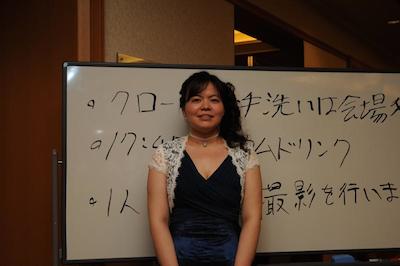 。クロー 手洗いは会場外
。17:
ムドリンク
。1人 撮影を行いま